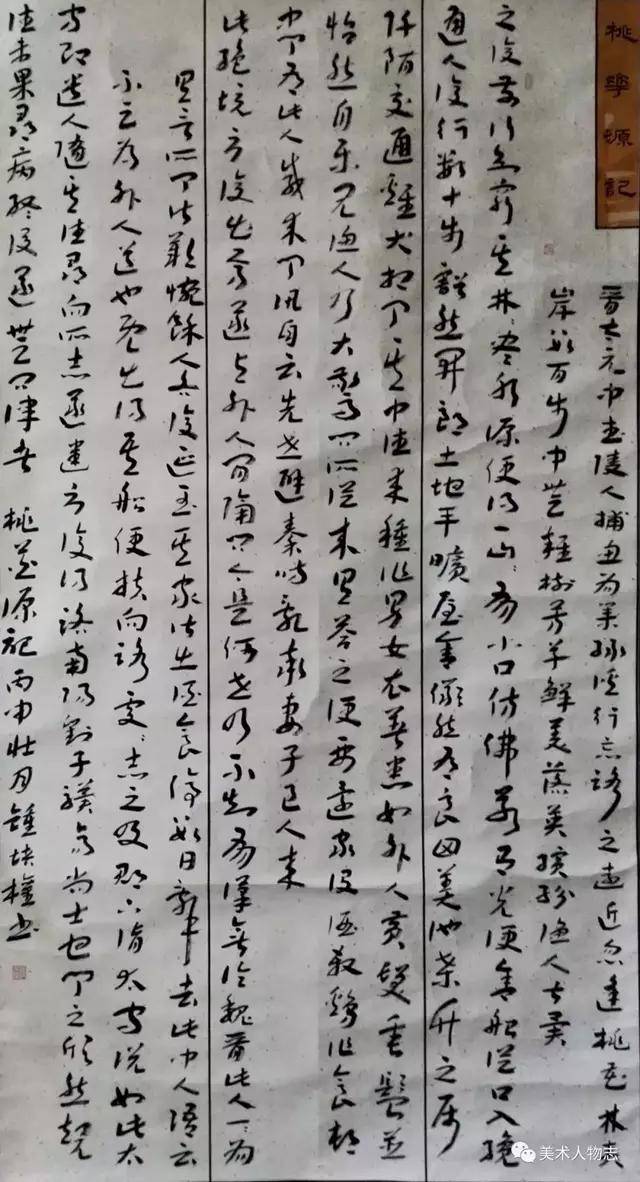 桃華源記
晉太元中武陵人捕魚為業緣溪行忘路之遠近忽逢桃花林夾
岸數百步中無雜樹芳草鮮美落英繽紛漁人甚異
之復前行欲窮其林林盡水源便得一山山有小口仿佛若有光便舍船從口入
通人復行數十步豁然開朗土地平曠屋舍儼然有良田美池桑竹之屬
阡陌交通雞犬相聞其中往來種作男女衣著悉如外人黃髮垂髫並
怡然自樂見漁人乃大驚問所從來具答之便要還家設酒殺雞作食村
中聞有此人咸來問訊自云先世避秦時亂率妻子邑人來
此絕境不復出焉遂與外人間隔問今是何世乃不知有漢無論魏晉此人一一為
具言所聞皆嘆惋餘人各復延至其家皆出酒食停數日辭去此中人語云
不足為外人道也既出得其船便扶向路處處志之及郡下詣太守說如此太
守即遣人隨其往尋向所志遂迷不復得路南陽劉子驥高尚士也聞之欣然規
往未果尋病終後遂無問津者 桃花源記 丙申壯月鍾權書
美术人物志